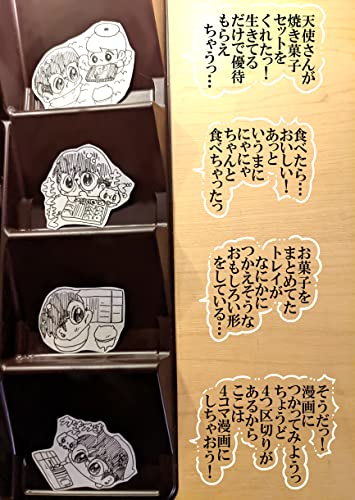 天使さんが
焼き菓子
セットを
くれたっ！
生きてる
だけで優待
もらえ
ちゃうっ…
食べたら…
おいしい！
あっと
いうまに
にゃにゃ
ちゃんと
食べちゃったっ
お菓子を
まとめてた
トレイが
なにかに
つかえそうな
おもしろい形
をしている…
そうだっ！
漫画に
つかってみようっ
ちょうど
４つ区切りが
あるから
ここは
４コマ漫画に
しちゃおう！